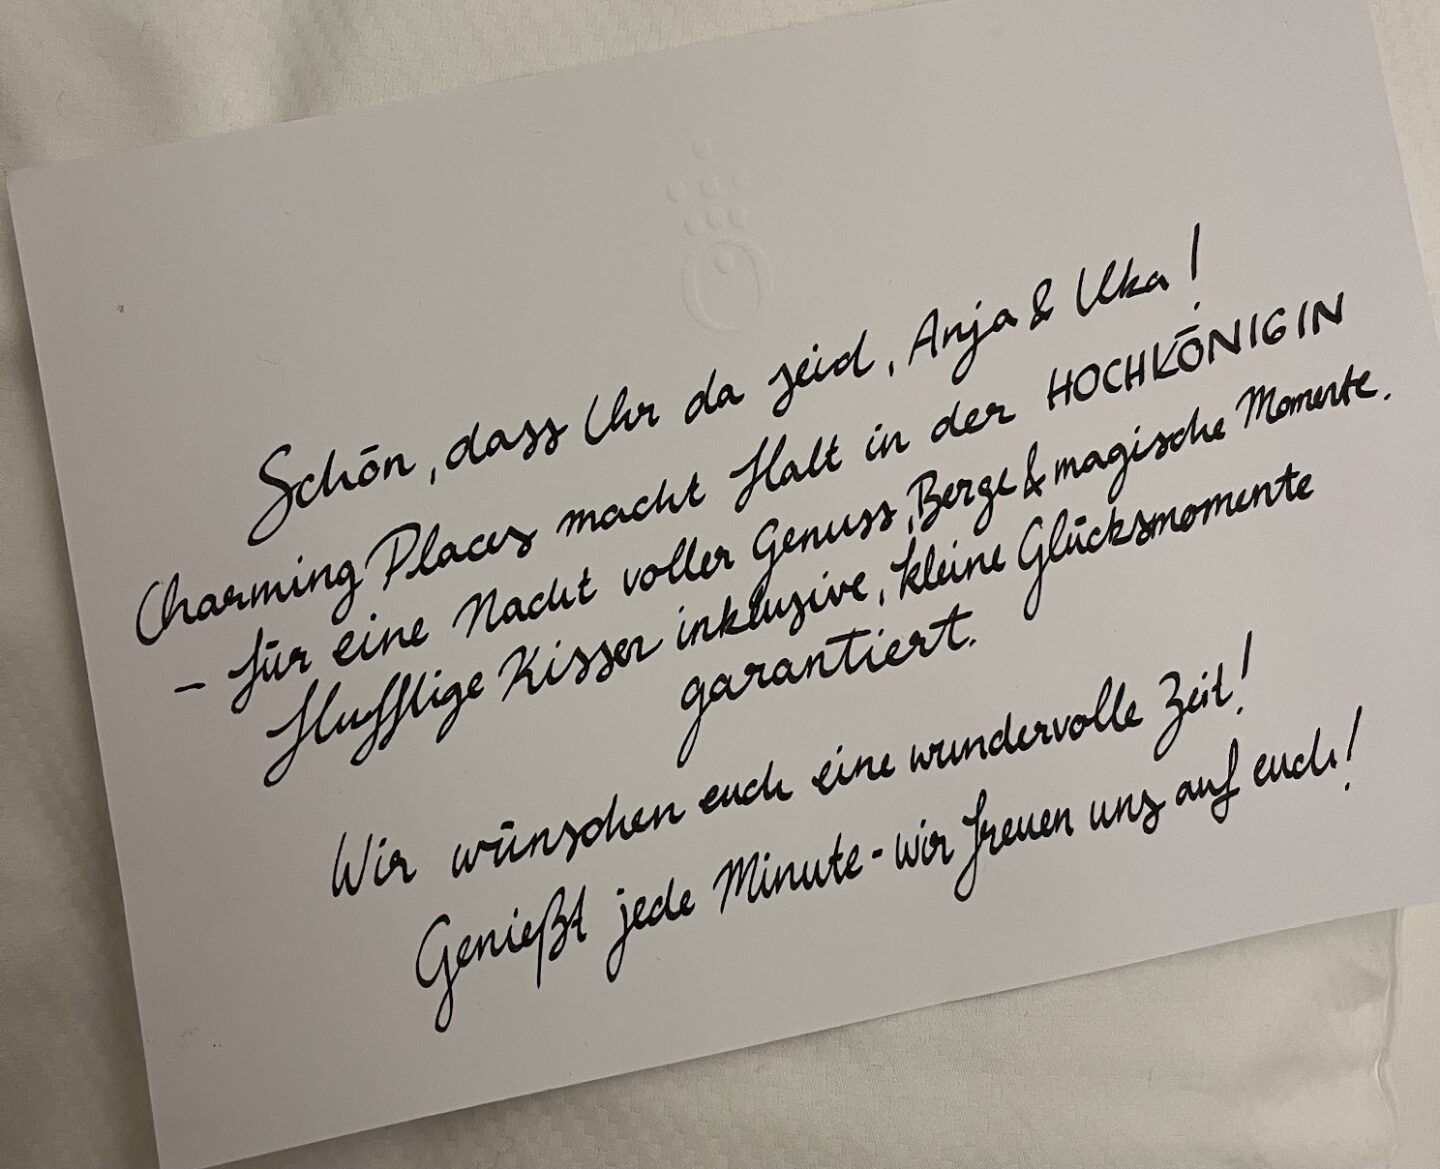 Schön, dass Ihr da seid, Anja & Uka!
Charming Places macht Halt in der HOCHKÖNIGIN
– für eine Nacht voller Genuss, Berge & magische Momente.
Flufflige Kissen inklusive, kleine Glücksmomente
garantiert.
Wir wünschen euch eine wundervolle Zeit!
Genießt jede Minute - wir freuen uns auf euch!